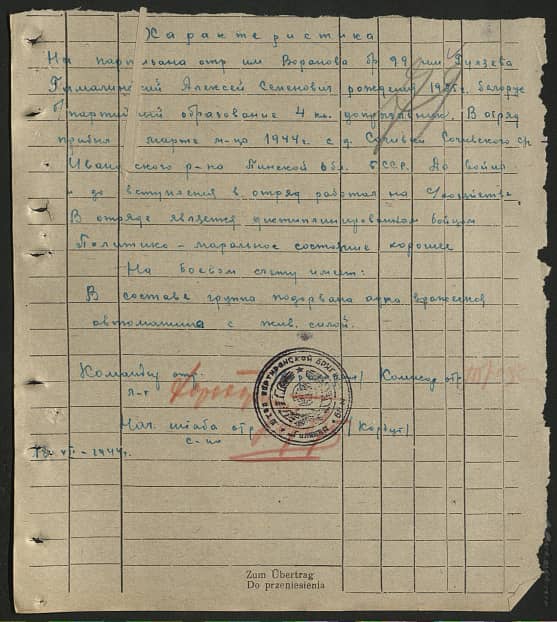 Характеристика
На партизана отр им Воранова бр 99 им Гуляева
Алексей Семенович рождения белорус
б/партийный образование 4 кл. В отряд
прибыл марте м-це 1944 г. с д. Сочивки Сочивского с/с
Ивановского р-на Пинской обл. БССР. До войны
и до вступления в отряд работал на с/хозяйстве
В отряде является дисциплинированном бойцом
Политико-маральное состояние хорошее
На боевом счету имеет:
В составе группы подорвана одна вражеская
автомашина с жив. силой.
Командир отр. Комисар отр.
л-т
Нач. штаба отр /Корбут/
с-на
VI-1944 г.
Zum Übertrag
Do przeniesienia